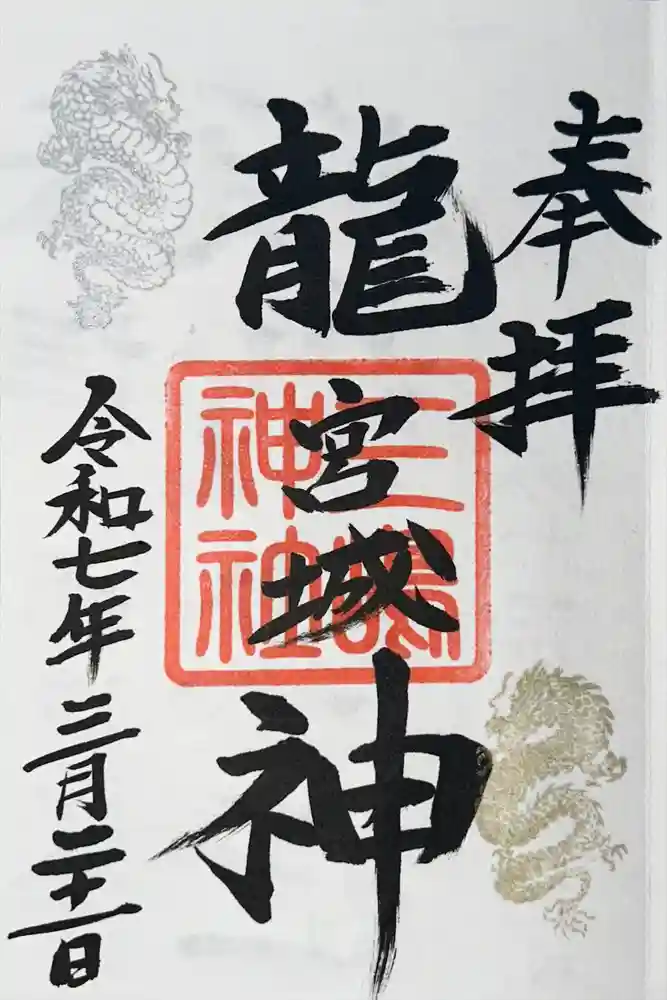 奉拝
龍宮城神
三嶋
神社
令和七年三月二十一日